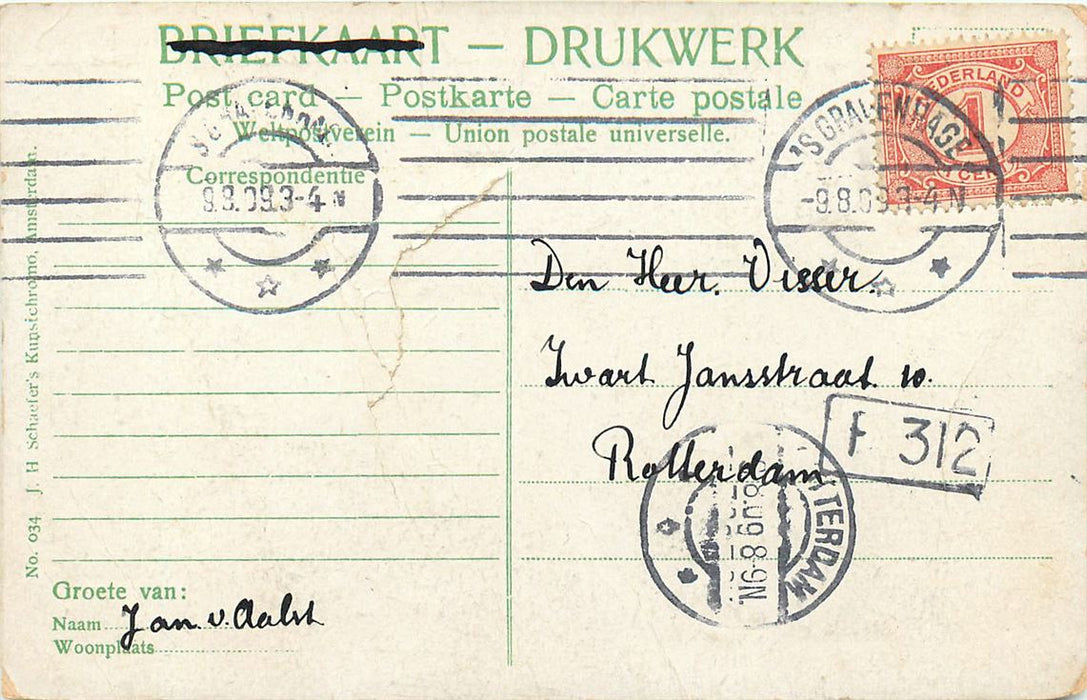 BRIEFKAART — DRUKWERK
Post card — Postkarte — Carte postale
Weltpostverein — Union postale universelle.
Correspondentie
'S GRAVENHAGE
9.8.09.3-4 N
'S GRAVENHAGE
-9.8.09.3-4 N
NEDERLAND
1
CENT
Den Heer. Visser.
Zwart Jansstraat 10.
Rotterdam
312
ROTTERDAM
No. 034 J. H. Schaefer's Kunstchromo, Amsterdam.
Groete van:
Naam Jan v. Aalst
Woonplaats